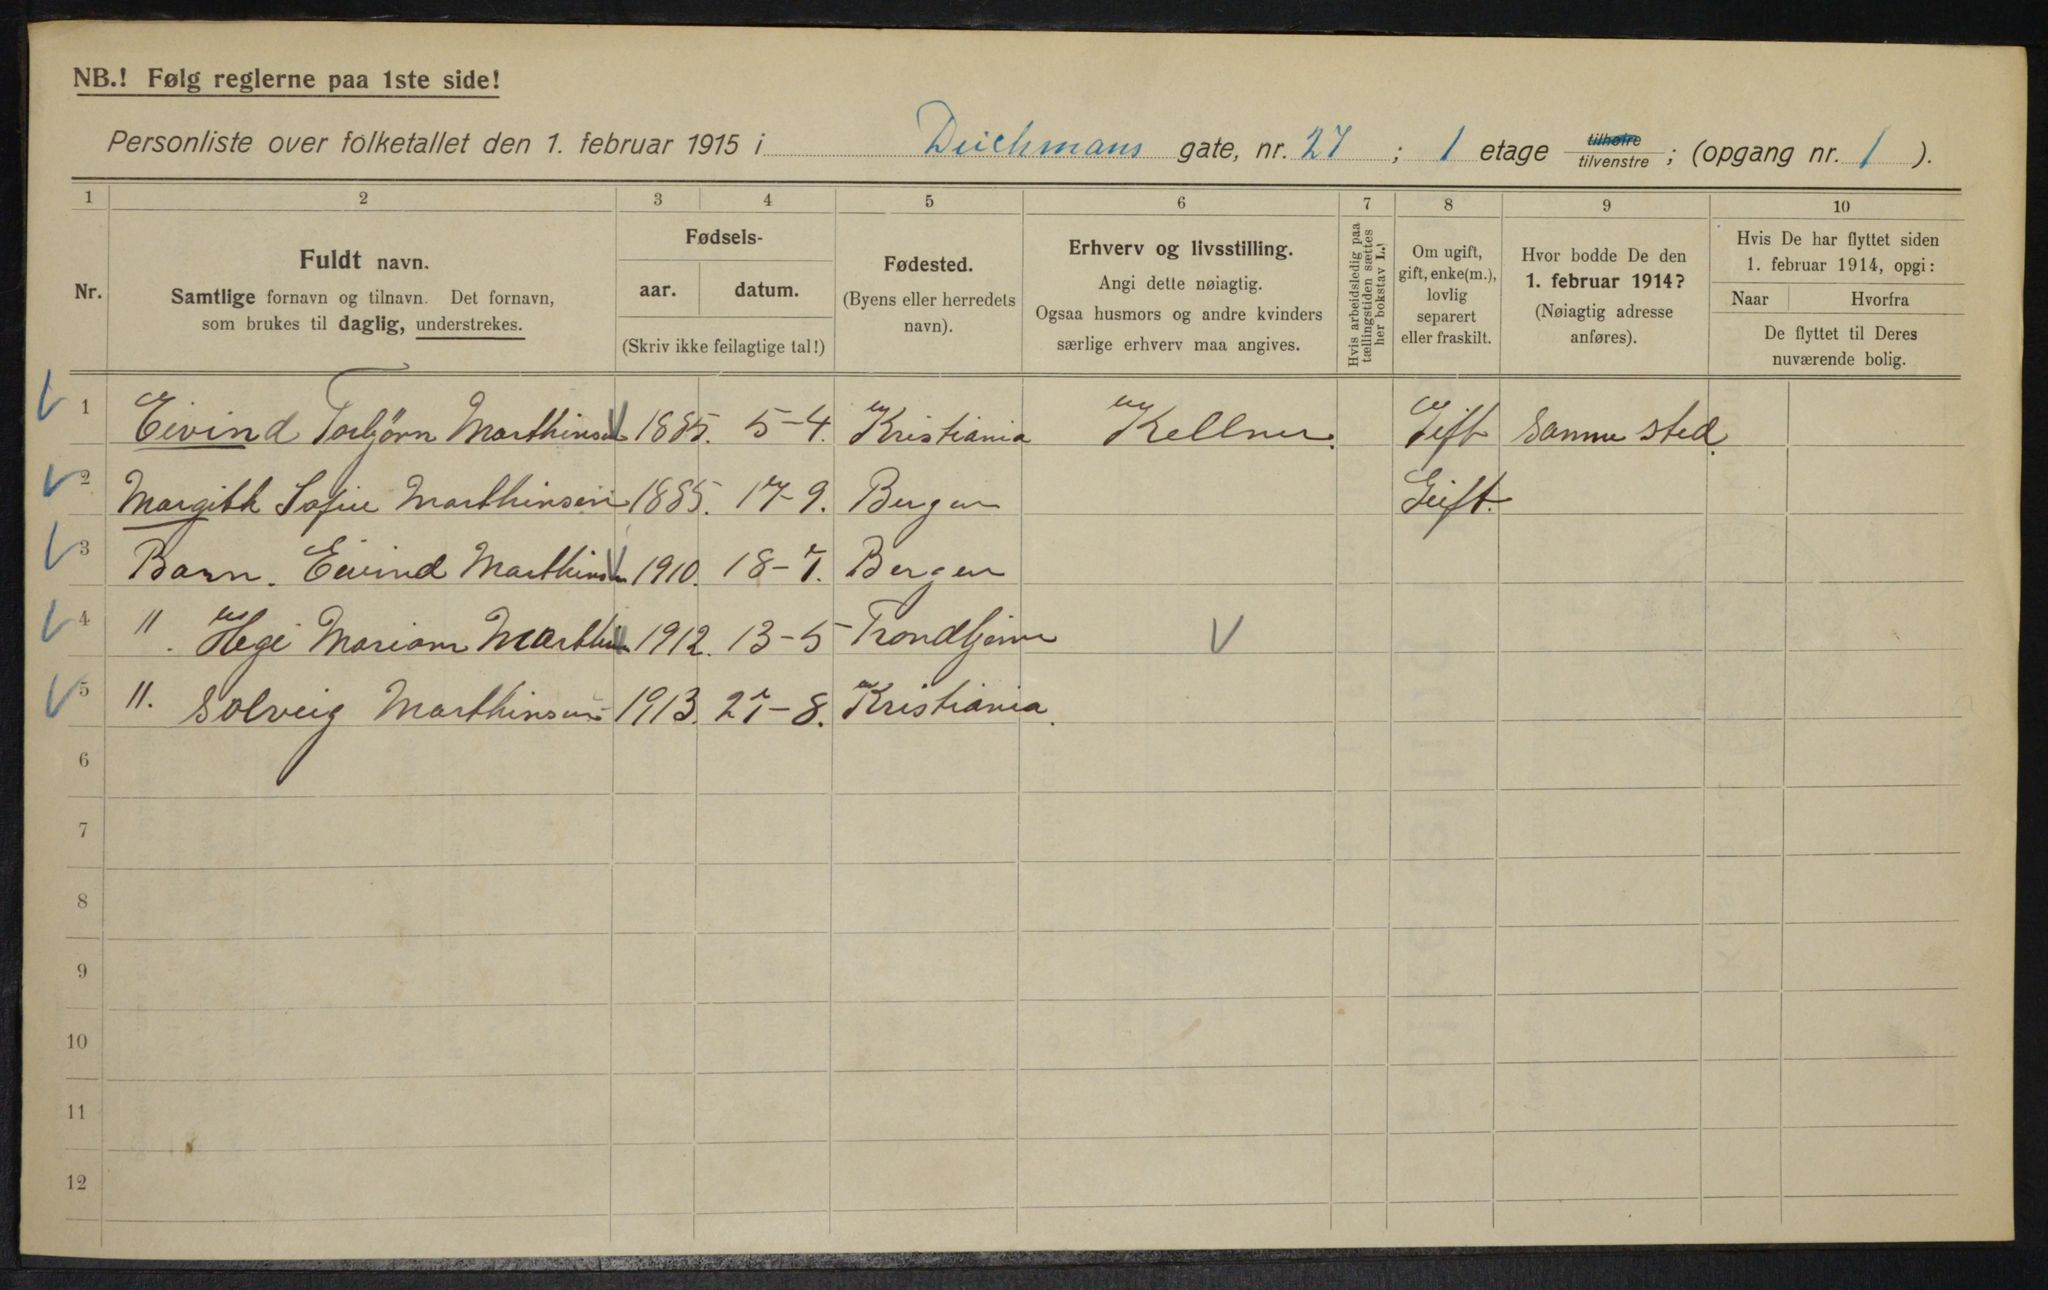 NB.! Følg reglerne paa 1ste side!
Personliste over folketallet den 1. februar 1915 i Deichmans gate, nr. 27; 1 etage tilhøire tilvenstre; (opgang nr. 1).
1 2 3 4 5 6 7 8 9 10
Nr.
Fuldt navn.
Samtlige fornavn og tilnavn. Det fornavn,
som brukes til daglig, understrekes.
Fødsels-
aar. datum.
(Skriv ikke feilagtige tal!)
Fødested.
(Byens eller herredets
navn).
Erhverv og livsstilling.
Angi dette nøiagtig.
Ogsaa husmors og andre kvinders
særlige erhverv maa angives.
Hvis arbeidsledig paa
tællingstiden sættes
her bokstav L.!
Om ugift,
gift, enke(m.),
lovlig
separert
eller fraskilt.
Hvor bodde De den
1. februar 1914?
(Nøiagtig adresse
anføres).
Hvis De har flyttet siden
1. februar 1914, opgi:
Naar Hvorfra
De flyttet til Deres
nuværende bolig.
1 Eivind Torbjörn Marthinsen 1885. 5-4. Kristiania Kellner. Gift Samme sted.
2 Margith Sofie Marthinsen 1885. 17-9. Bergen Gift.
3 Barn. Eivind Marthinsen 1910. 18-7. Bergen
4 " Hege Mariam Marthin 1912. 13-5 Trondhjem
5 ". Solveig Marthinsen 1913. 27-8. Kristiania.
6
7
8
9
10
11
12